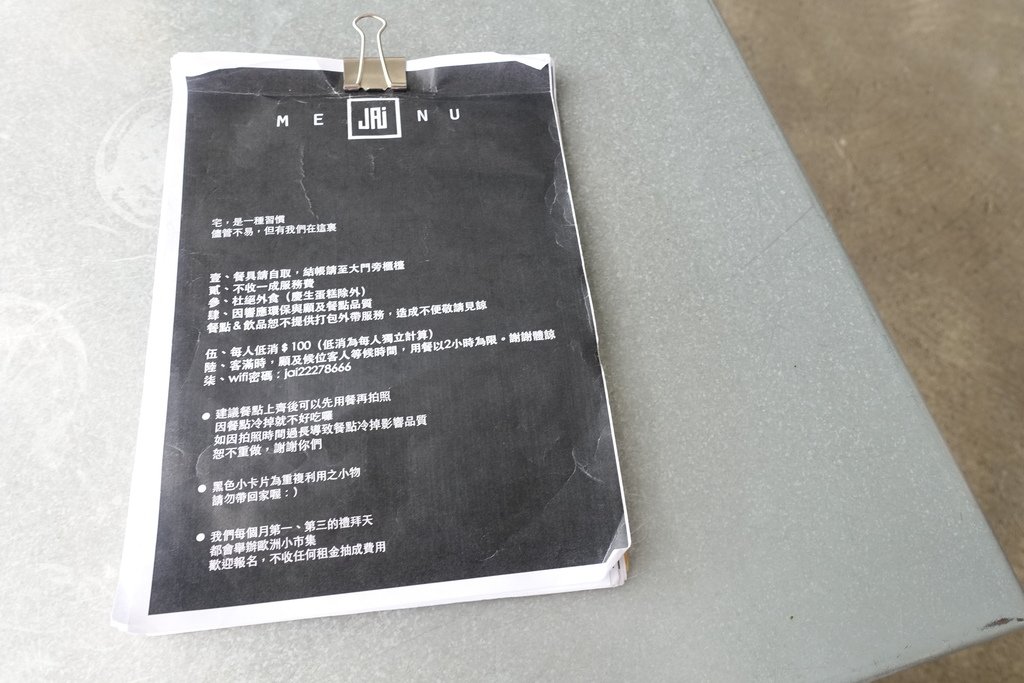 ME JAi NU
宅，是一種習慣
儘管不易，但有我們在這裏
壹、餐具請自取，結帳請至大門旁櫃檯
貳、不收一成服務費
參、杜絕外食（慶生蛋糕除外）
肆、因響應環保與顧及餐點品質
餐點&飲品恕不提供打包外帶服務，造成不便敬請見諒
伍、每人低消$100（低消為每人獨立計算）
陸、客滿時，顧及候位客人等候時間，用餐以2小時為限。謝謝體諒
柒、wifi密碼：jai22278666
● 建議餐點上齊後可以先用餐再拍照
因餐點冷掉就不好吃囉
如因拍照時間過長導致餐點冷掉影響品質
恕不重做，謝謝你們
● 黑色小卡片為重複利用之小物
請勿帶回家喔：）
● 我們每個月第一、第三的禮拜天
都會舉辦歐洲小市集
歡迎報名，不收任何租金抽成費用